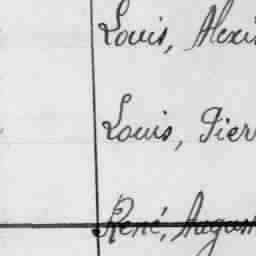 Louis, Alexi
Louis, Pier
René, August